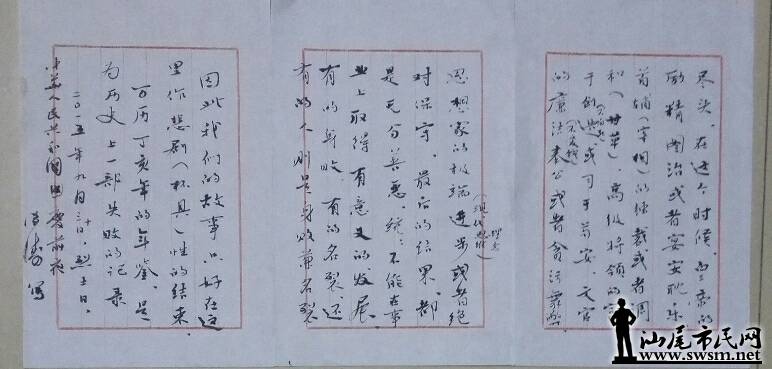 尽头。在这个时候，皇帝的
励精图治或者宴安耽乐
首辅（宰相）的独裁或者调
和（甘草），高级将领的富
于创造或习于苟安，文官
的廉洁奉公或者贪污舞弊，
思想家的极端进步或者绝
（现代
对保守，最后的结果，都
是无分善恶，统统不能在事
业上取得有意义的发展，
有的身败，有的名裂，还
有的人则是身败兼名裂
因此我们的故事只好在这
里作悲剧（杯具）性的结束，
万历丁亥年的年鉴，是
为历史上一部失败的记录
二〇一五年九月三十日，烈士日，
中华人民共和国国庆前夜
写
汕尾市民网
www.swsm.net